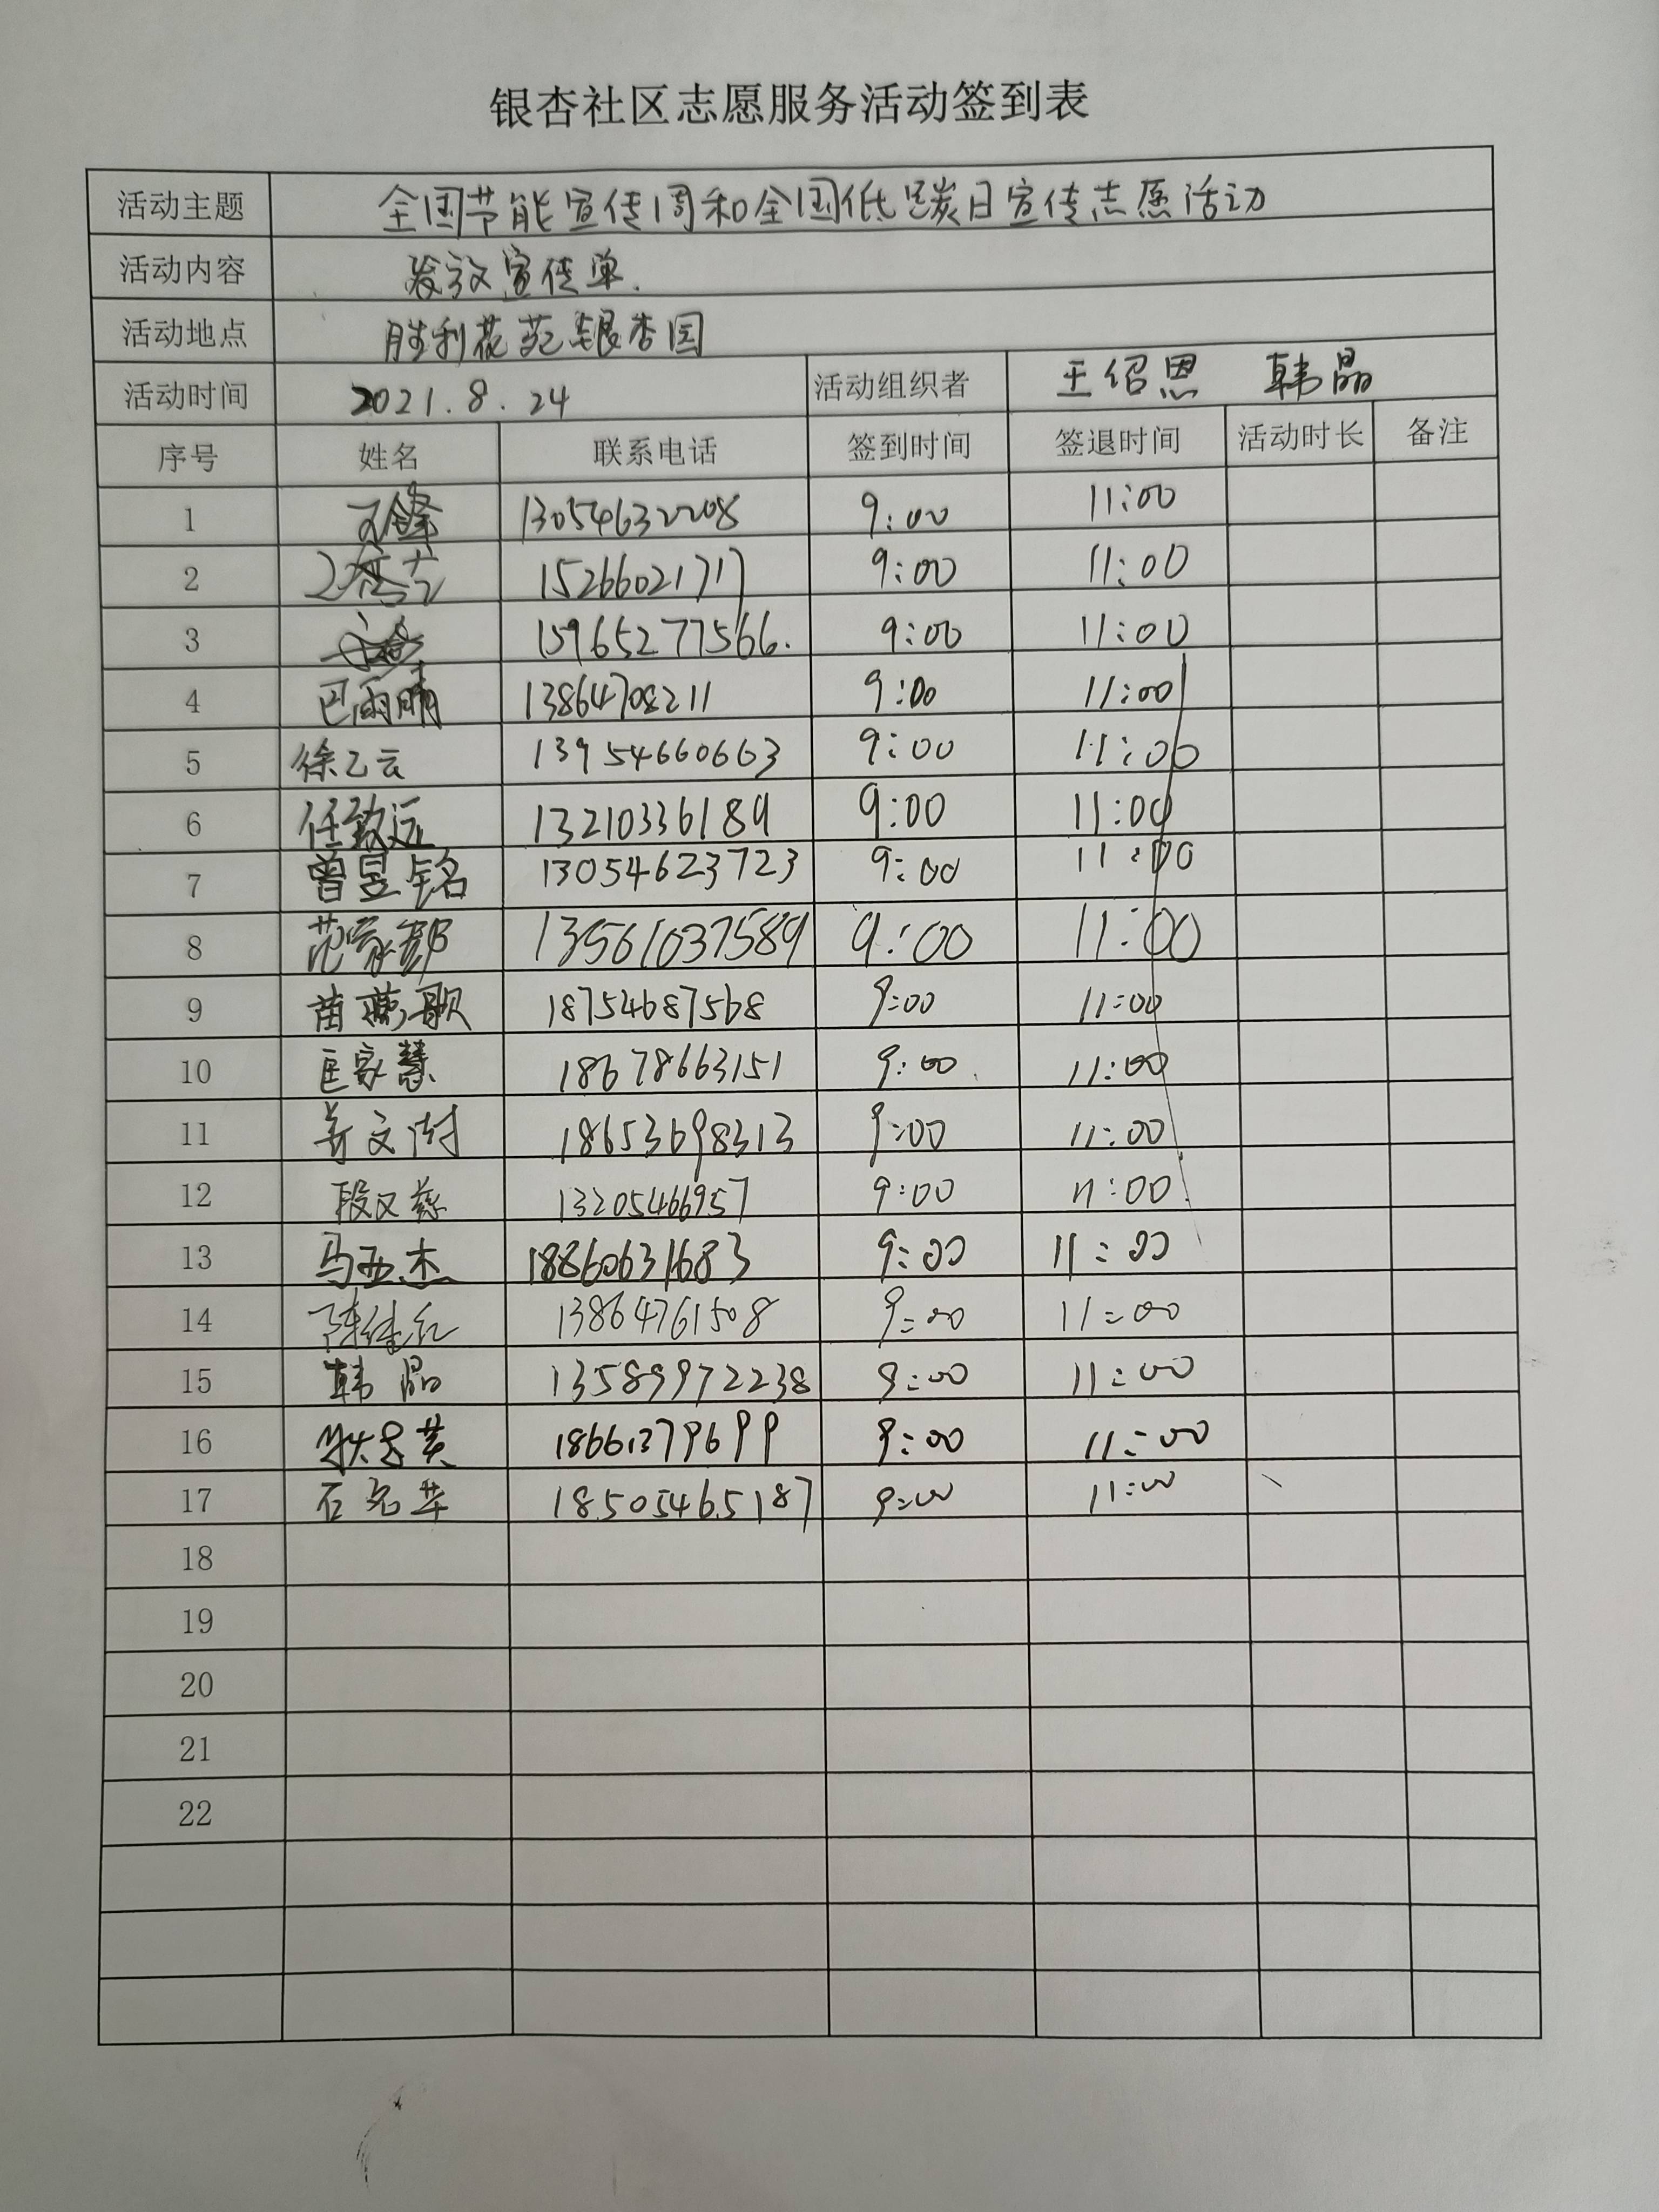 银杏社区志愿服务活动签到表
活动主题 全国节能宣传周和全国低碳日宣传志愿活动
活动内容 发放宣传单.
活动地点 胜利花苑银杏园
活动时间 2021.8.24 活动组织者 王绍恩 韩晶
序号 姓名 联系电话 签到时间 签退时间 活动时长 备注
1 13054632208 9:00 11:00
2 15266021717 9:00 11:00
3 15965277566. 9:00 11:00
4 巴雨晴 13864708211 9:00 11:00
5 徐乙云 13954660663 9:00 11:00
6 任致远 13210336189 9:00 11:00
7 曾昱铭 13054623723 9:00 11:00
8 范家郡 13561037589 9:00 11:00
9 苗燕歌 18754687568 9:00 11:00
10 匡家慧 18678663151 9:00 11:00
11 姜文澍 18653698313 9:00 11:00
12 段又慈 13205466957 9:00 11:00
13 马亚杰 18860631683 9:00 11:00
14 13864761508 9:00 11:00
15 韩晶 13589972238 9:00 11:00
16 18661379699 9:00 11:00
17 石完华 18505465187 9:00 11:00
18
19
20
21
22